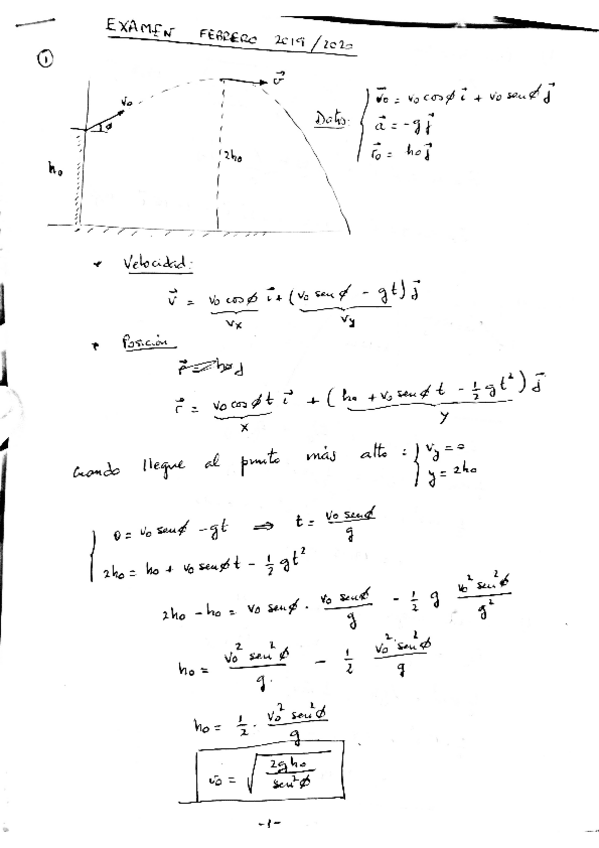 EXAMEN FEBRERO 2019/2020
①
v⃗
v₀
ϕ
h₀
2h₀
Datos:
v⃗₀ = v₀ cos ϕ i⃗ + v₀ sen ϕ j⃗
a⃗ = -g j⃗
r⃗₀ = h₀ j⃗
* Velocidad:
v⃗ = v₀ cos ϕ i⃗ + (v₀ sen ϕ - gt) j⃗
vx vy
* Posición
r⃗ = h₀ j
r⃗ = v₀ cos ϕ t i⃗ + (h₀ + v₀ sen ϕ t - 1/2 g t²) j⃗
x y
Cuando llegue al punto más alto: { vy = 0
y = 2h₀
0 = v₀ sen ϕ - gt ⇒ t = v₀ sen ϕ / g
2h₀ = h₀ + v₀ sen ϕ t - 1/2 g t²
2h₀ - h₀ = v₀ sen ϕ · v₀ sen ϕ / g - 1/2 g v₀² sen² ϕ / g²
h₀ = v₀² sen² ϕ / g - 1/2 v₀² sen² ϕ / g
h₀ = 1/2 · v₀² sen² ϕ / g
v₀ = √(2gh₀ / sen² ϕ)
-1-